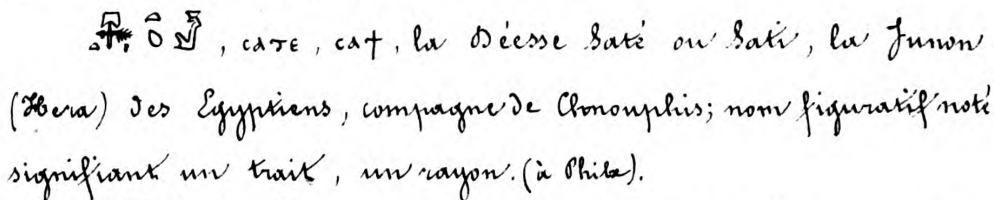 , ⲥⲁⲧⲉ, ⲥⲁϯ, la Déesse Saté ou Sati, la Junon
(Hera) des Egyptiens, compagne de Chnouphis; nom figuratif noté
signifiant un trait, un rayon. (à Philæ).